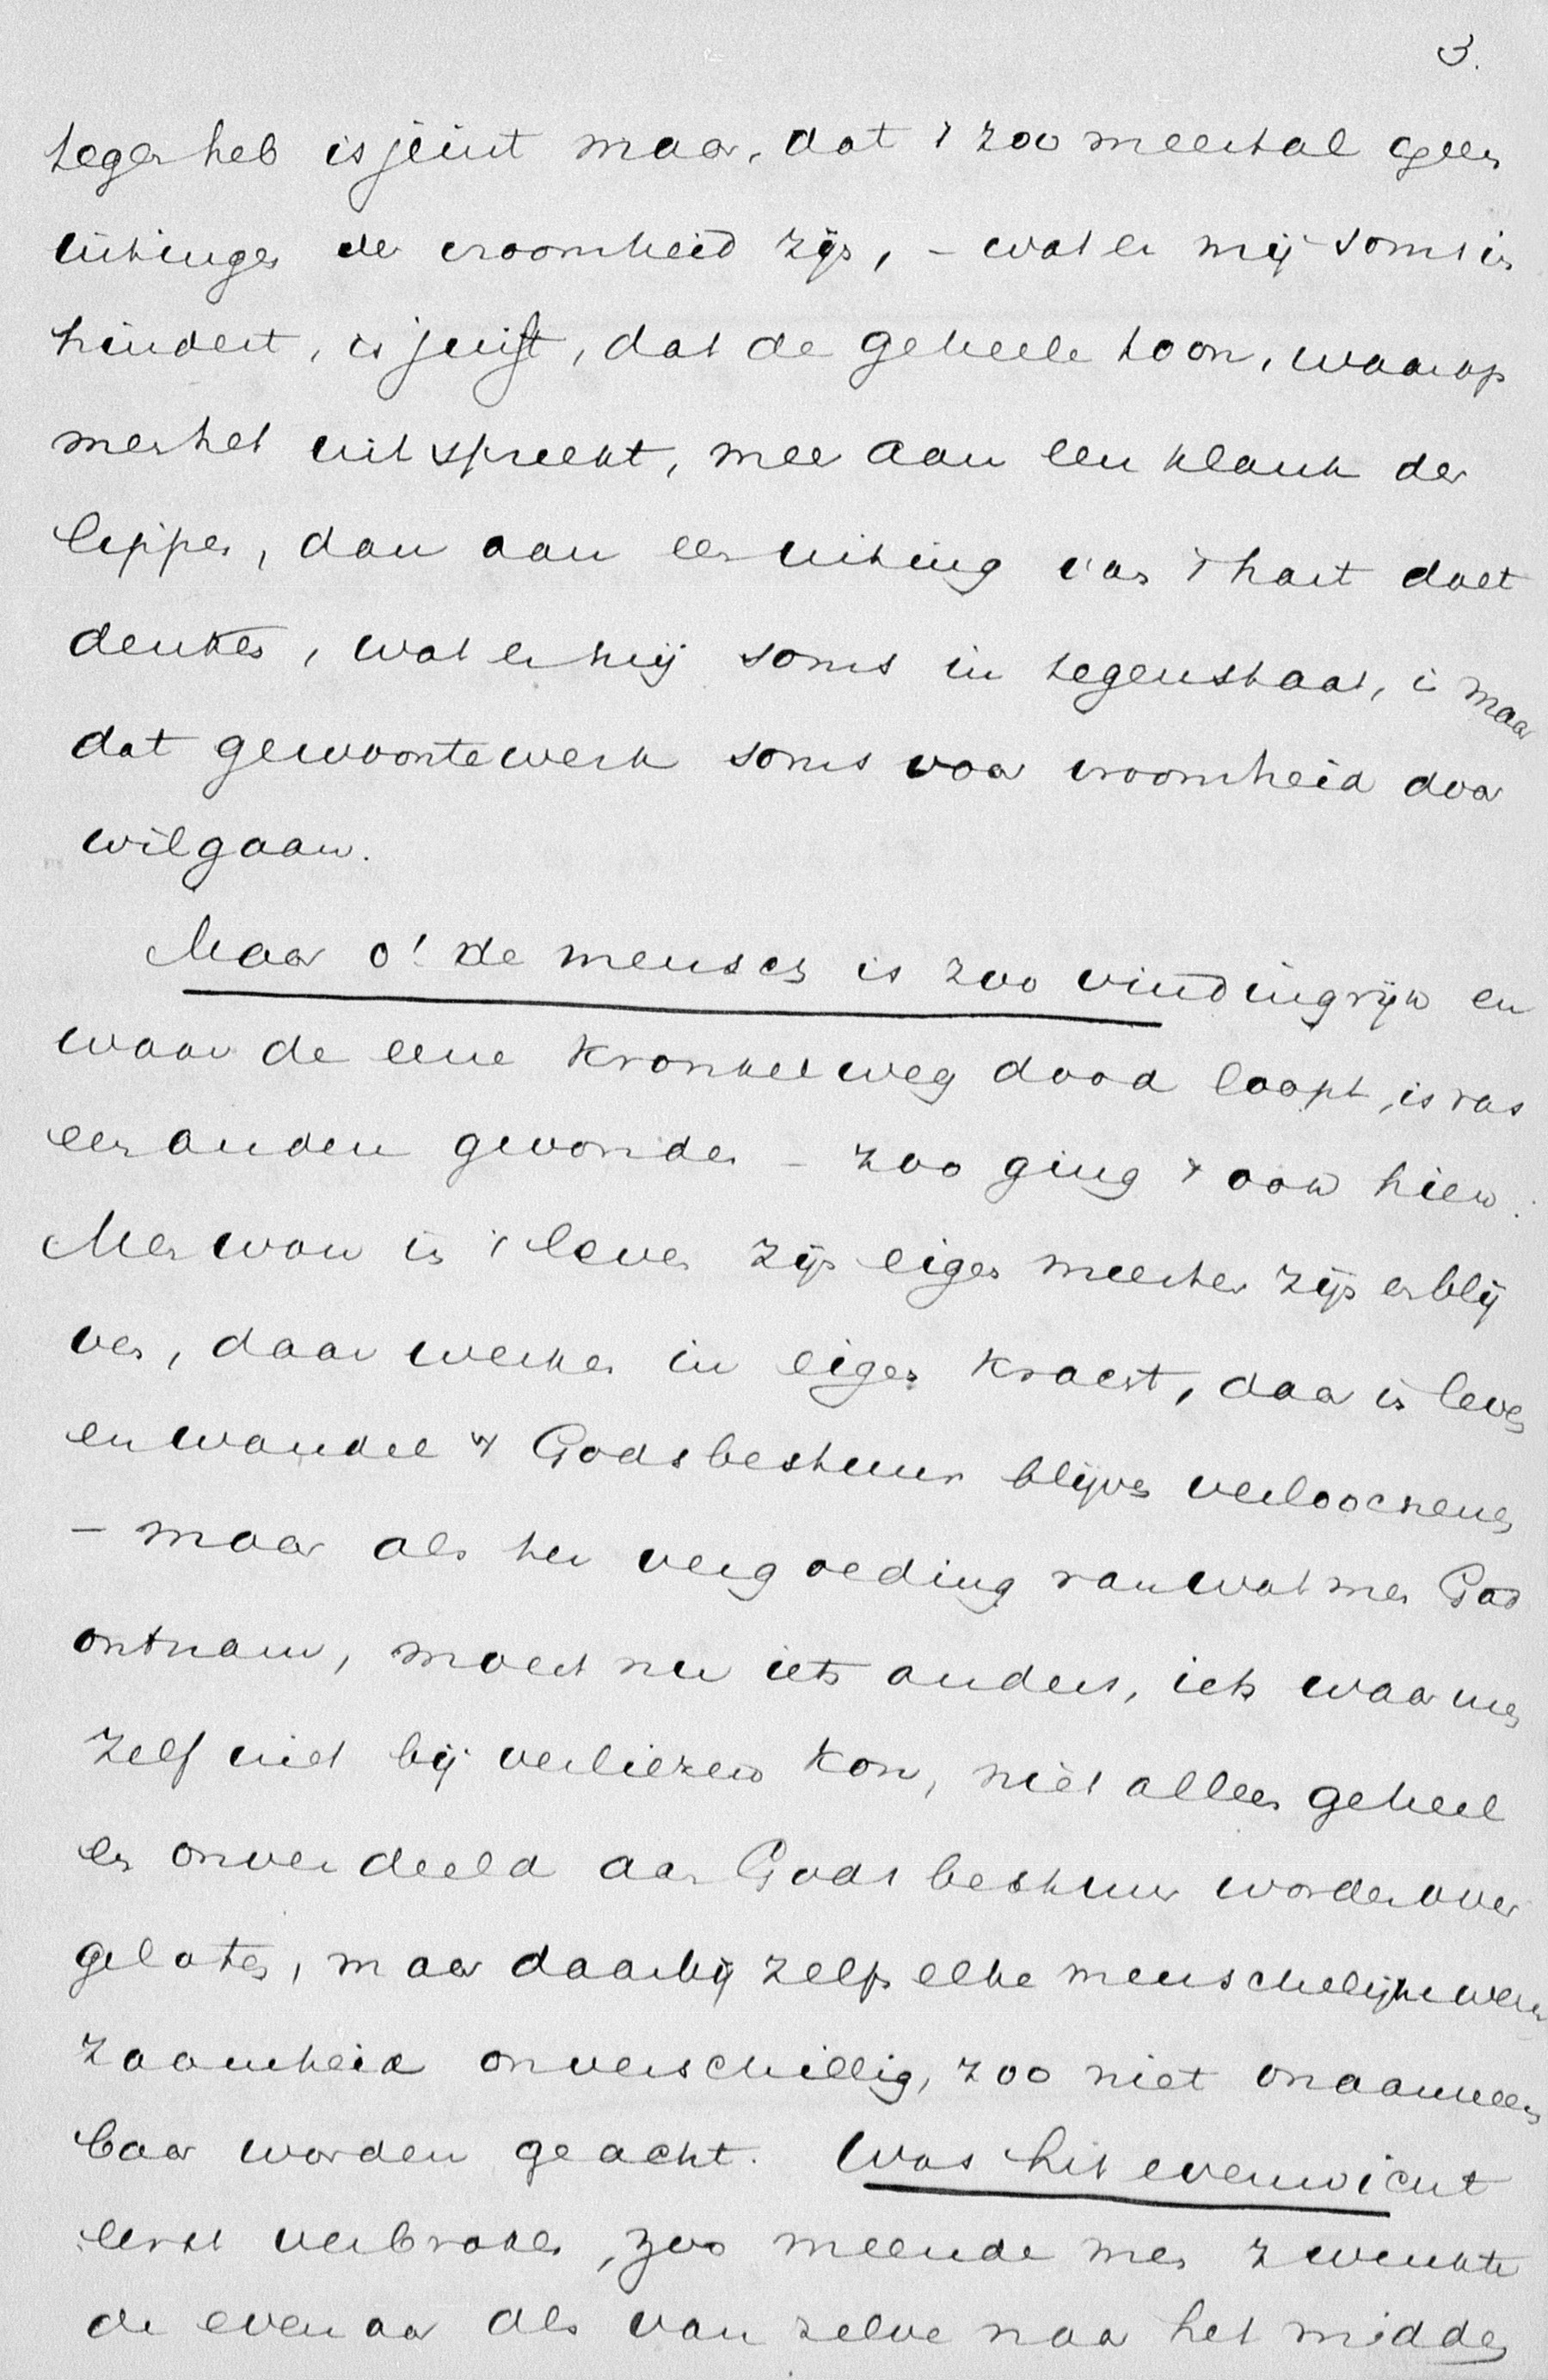 3.
tegen heb is juist maar, dat 't zoo meestal geen
uitingen der vroomheid zijn, – wat er mij soms in
hindert, is juist, dat de geheele toon, waarop
men het uitspreekt, meer aan een klank der
lippen, dan aan een uiting van 't hart doet
denken, wat er mij soms in tegenstaat, is maar
dat gewoontewerk soms voor vroomheid door
wil gaan.
Maar o! de mensch is zoo vindingrijk en
waar de eene kronkelweg dood loopt, is ras
een anderen gevonden – zoo ging 't ook hier.
Men wou in 't leven zijn eigen meester zijn en blij
ven, daar werken in eigen kracht, daar in leven
en wandel 't Godsbestuur blijven verloochenen
– maar als ter vergoeding van wat men God
ontnam, moest nu iets anders, iets waar men
zelf niet bij verliezen kon, niet alleen geheel
en onverdeeld aan Gods bestuur worden over
gelaten, maar daarbij zelfs elke menschelijke werk
zaamheid onverschillig, zoo niet onaanneem
baar worden geacht. Was hit evenwicht
eerst verbroken, zoo meende men zwenkte
de evenaar als van zelve naar het midden